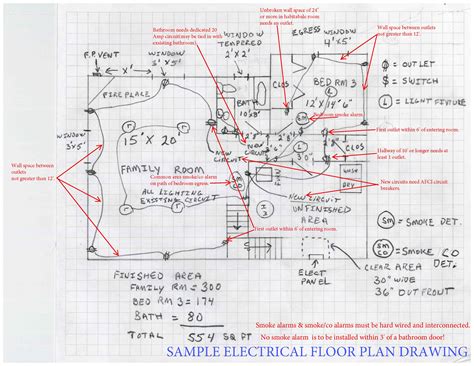 Unbroken wall space of 24"
or more in habitable room
needs an outlet.
Bathroom needs dedicated 20
Amp circuit(may be tied in with
existing bathroom)
Wall space between outlets
not greater than 12'.
WINDOW
TEMPERED
2'x2'
EGRESS WINDOW
4'x5'
F.P. VENT
WINDOW
3'x5'
X'
= OUTLET
S = SWITCH
L = LIGHT FIXTURE
CLOS
BED RM 3
12'x14'6"
FIREPLACE
BATH
10'x8'
Bedroom smoke alarm
First outlet within 6' of entering room.
WINDOW
3'x5'
15'X 20'
CLOS
3'0"
Hallway of 10' or longer needs at
least 1 outlet.
Wall space between
outlets
not greater than 12'.
NEW
CIRCUIT
NEW
CIRCUIT
FAMILY ROOM
Common area smoke/co alarm
on path of bedroom egress
WASH
DRY
New circuits need AFCI circuit
breakers.
ALL LIGHTING
EXISTING CIRCUIT
SM
CO
NEW CIRCUIT
UNFINISHED
AREA
SM = SMOKE DET.
First outlet within 6' of entering room.
SM
CO = SMOKE CO
DET.
ELECT
PANEL
CLEAR AREA
30" WIDE
36" OUT FRONT
FINISHED AREA
FAMILY RM = 300
BED RM 3 = 174
BATH = 80
TOTAL 554 SQ FT
Smoke alarms & smoke/co alarms must be hard wired and interconnected.
No smoke alarm is to be installed within 3' of a bathroom door!
SAMPLE ELECTRICAL FLOOR PLAN DRAWING